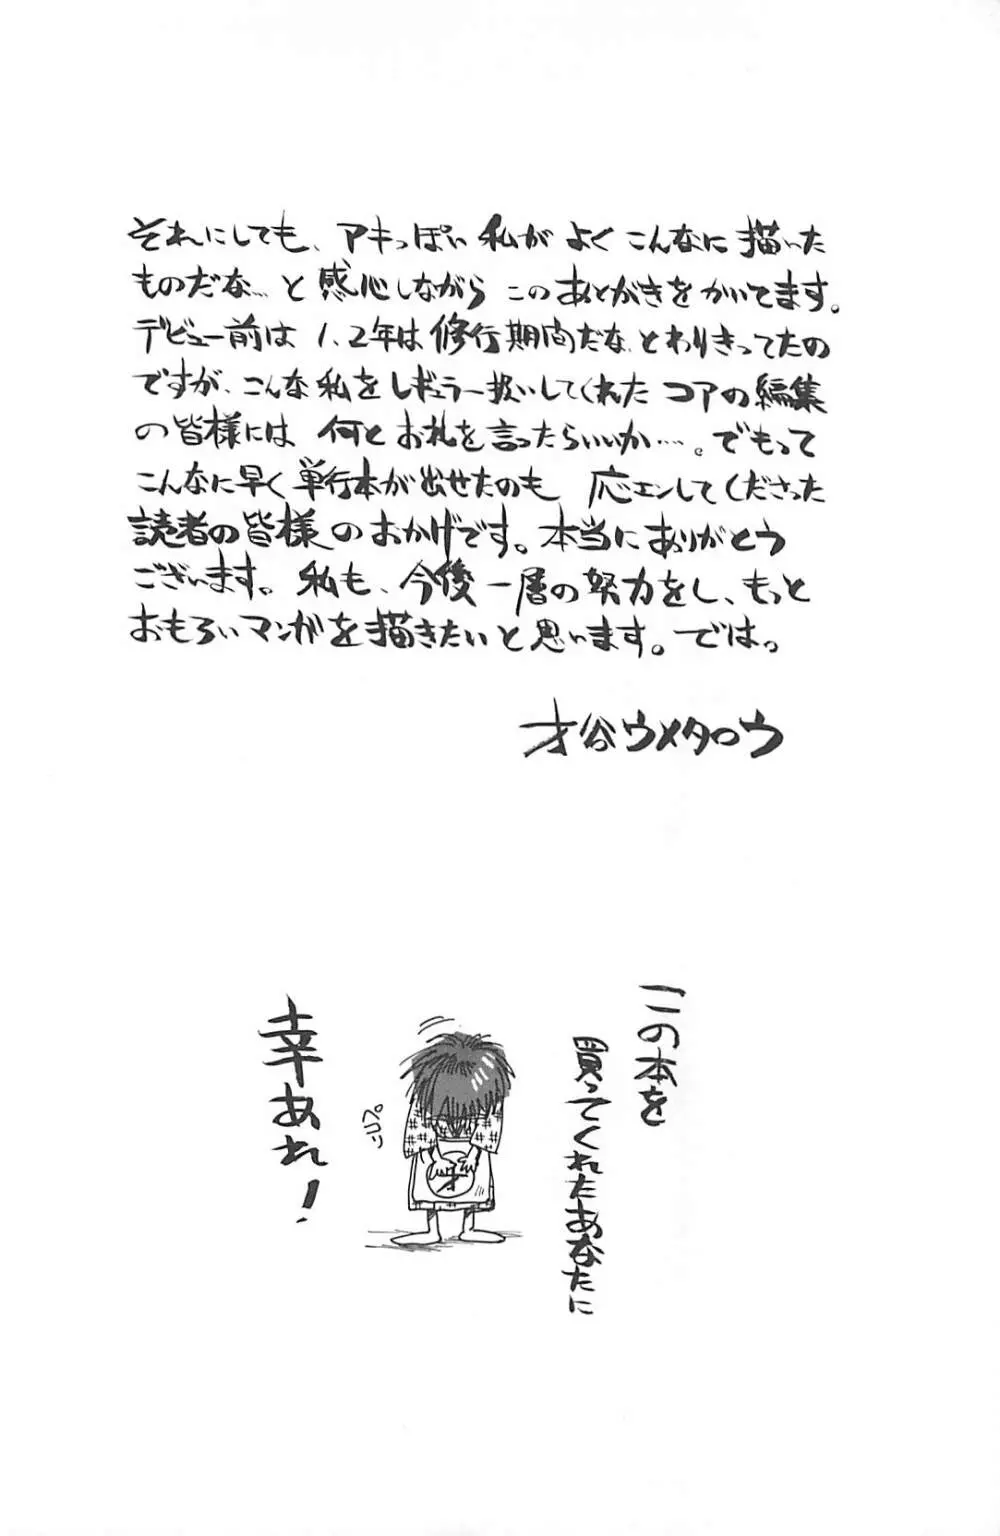 それにしても、アキっぽい私がよくこんなに描いた
ものだな…と感心しながらこのあとがきをかいてます。
デビュー前は1、2年は修行期間だな、とわりきってたの
ですが、こんな私をレギュラー扱いしてくれたコアの編集
の皆様には何とお礼を言ったらいいか……。でもって
こんなに早く単行本が出せたのも応エンしてくださった
読者の皆様のおかげです。本当にありがとう
ございます。私も、今後一層の努力をし、もっと
おもろいマンガを描きたいと思います。では。
才谷ウメタロウ
この本を
買ってくれたあなたに
幸あれ!
ペコリ。
才